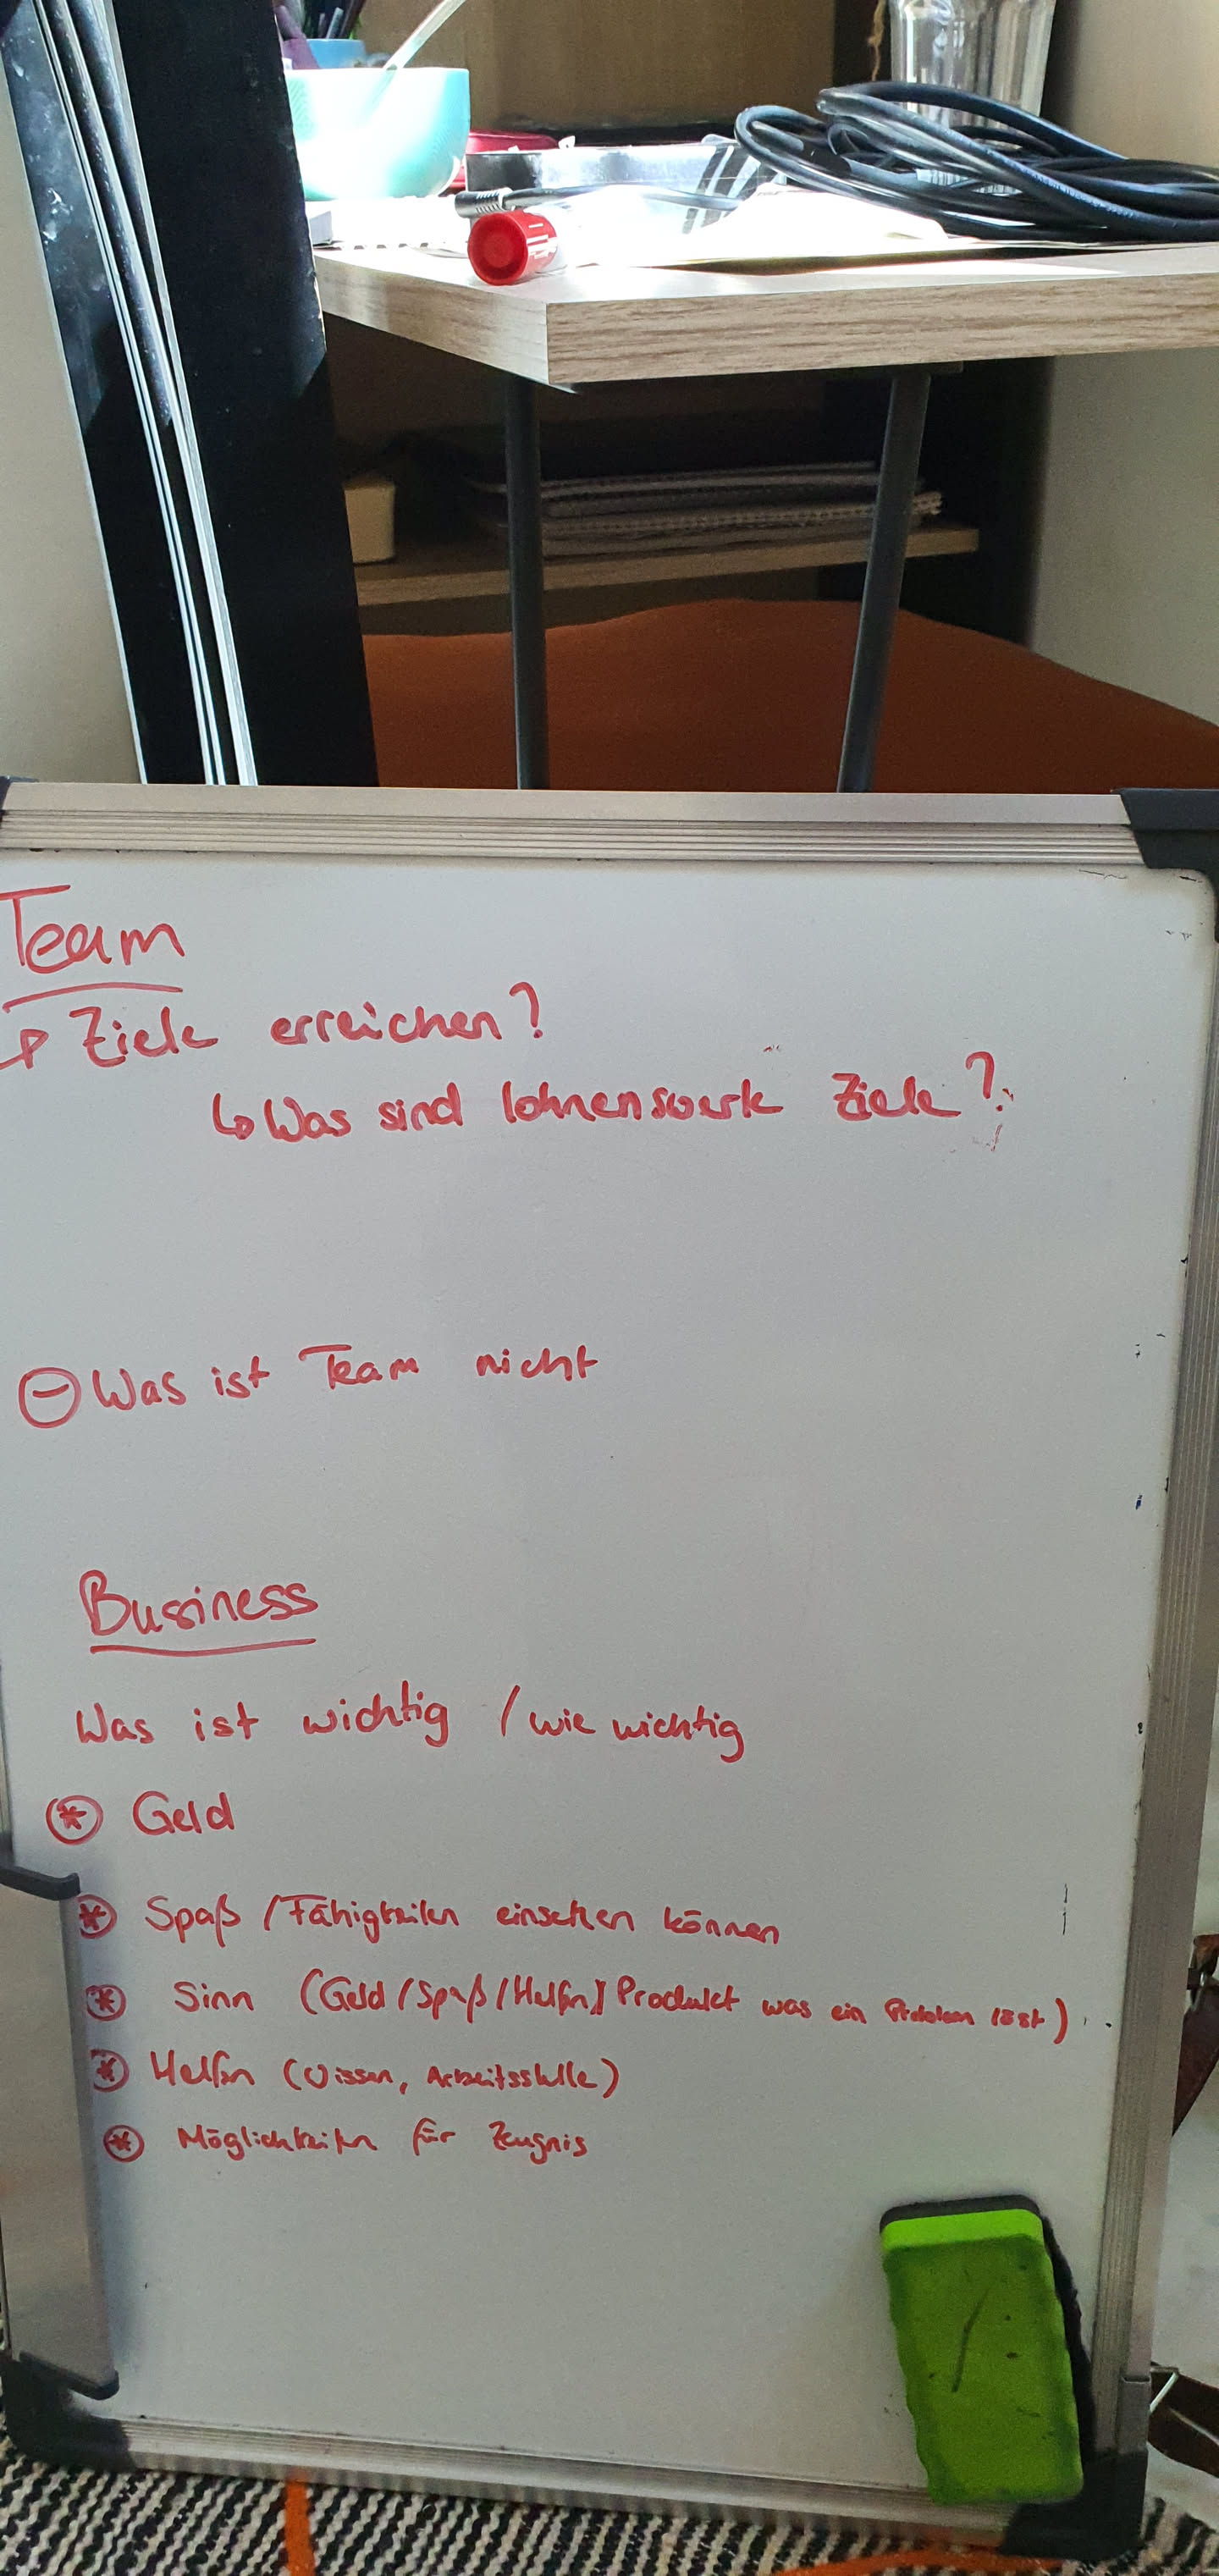 Team
↳ Ziele erreichen?
↳ Was sind lohnenswerte Ziele?
⊖ Was ist Team nicht
Business
Was ist wichtig / wie wichtig
⊛ Geld
⊛ Spaß / Fähigkeiten einsetzen können
⊛ Sinn (Geld / Spaß / Helfen / Produkt was ein Problem löst)
⊛ Helfen (Wissen, Arbeitsstelle)
⊛ Möglichkeiten für Zeugnis